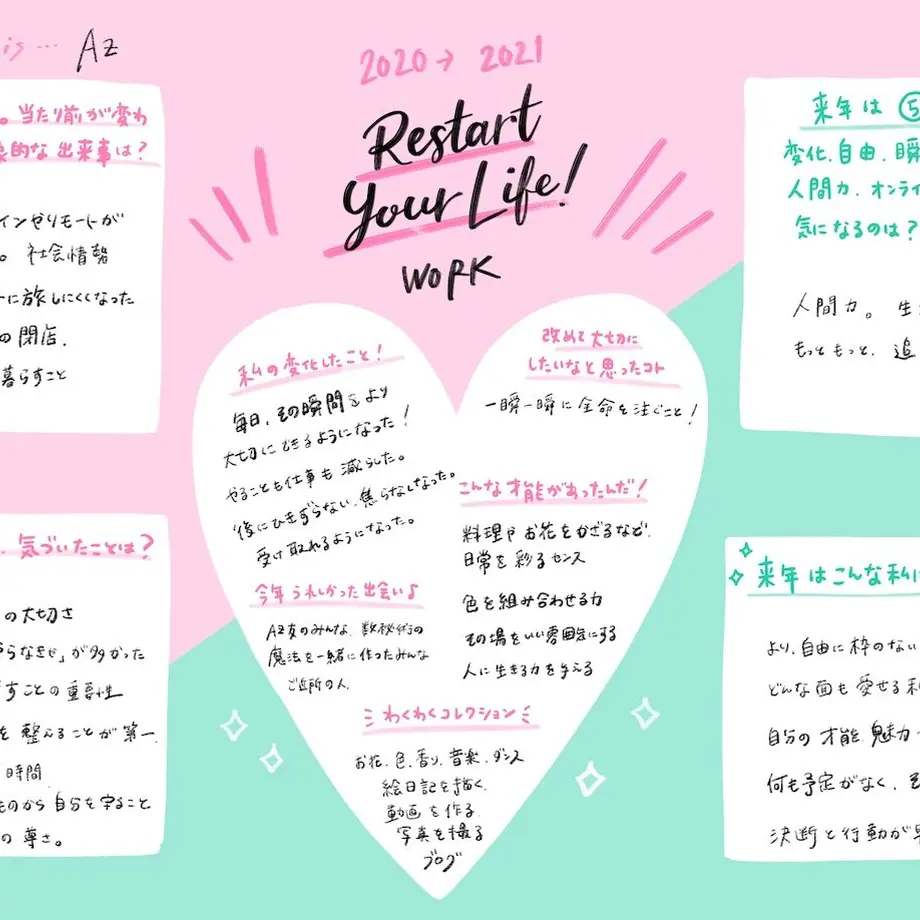 is… Az
2020→2021
Restart
Your Life!
WORK
。当たり前が変わ
的な出来事は？
インゼリモートが
。社会情勢
に旅しにくくなった
の閉店.
暮らすこと
. 気づいたことは？
の大切さ
が多かった
すことの重要性
を整えることが第一.
時間
ものから自分を守ること
の尊さ。
私の変化したこと！
毎日、その瞬間をより
大切にできるようになった！
やることも仕事も減らした。
後にひきずらない、焦らなしなった。
受け取れるようになった。
今年うれしかった出会い♪
Az女のみんな、数秘術の
魔法を一緒に作ったみんな
ご近所の人.
改めて大切に
したいなと思ったコト
一瞬一瞬に全命を注ぐこと！
こんな才能があったんだ！
料理やお花をかざるなど、
日常を彩るセンス
色を組み合わせる力
その場をいい雰囲気にする
人に生きる力を与える
わくわくコレクション
お花、色、香り、音楽、ダンス
絵日記を描く、
動画を作る、
写真を撮る
ブログ
来年は ⑤
変化、自由、瞬
人間力、オンライ
気になるのは？
人間力。生
もっともっと、追
来年はこんな私に
より、自由に枠のない
どんな面も愛せる私
自分の才能、魅力
何も予定がなく、そ
決断と行動が早